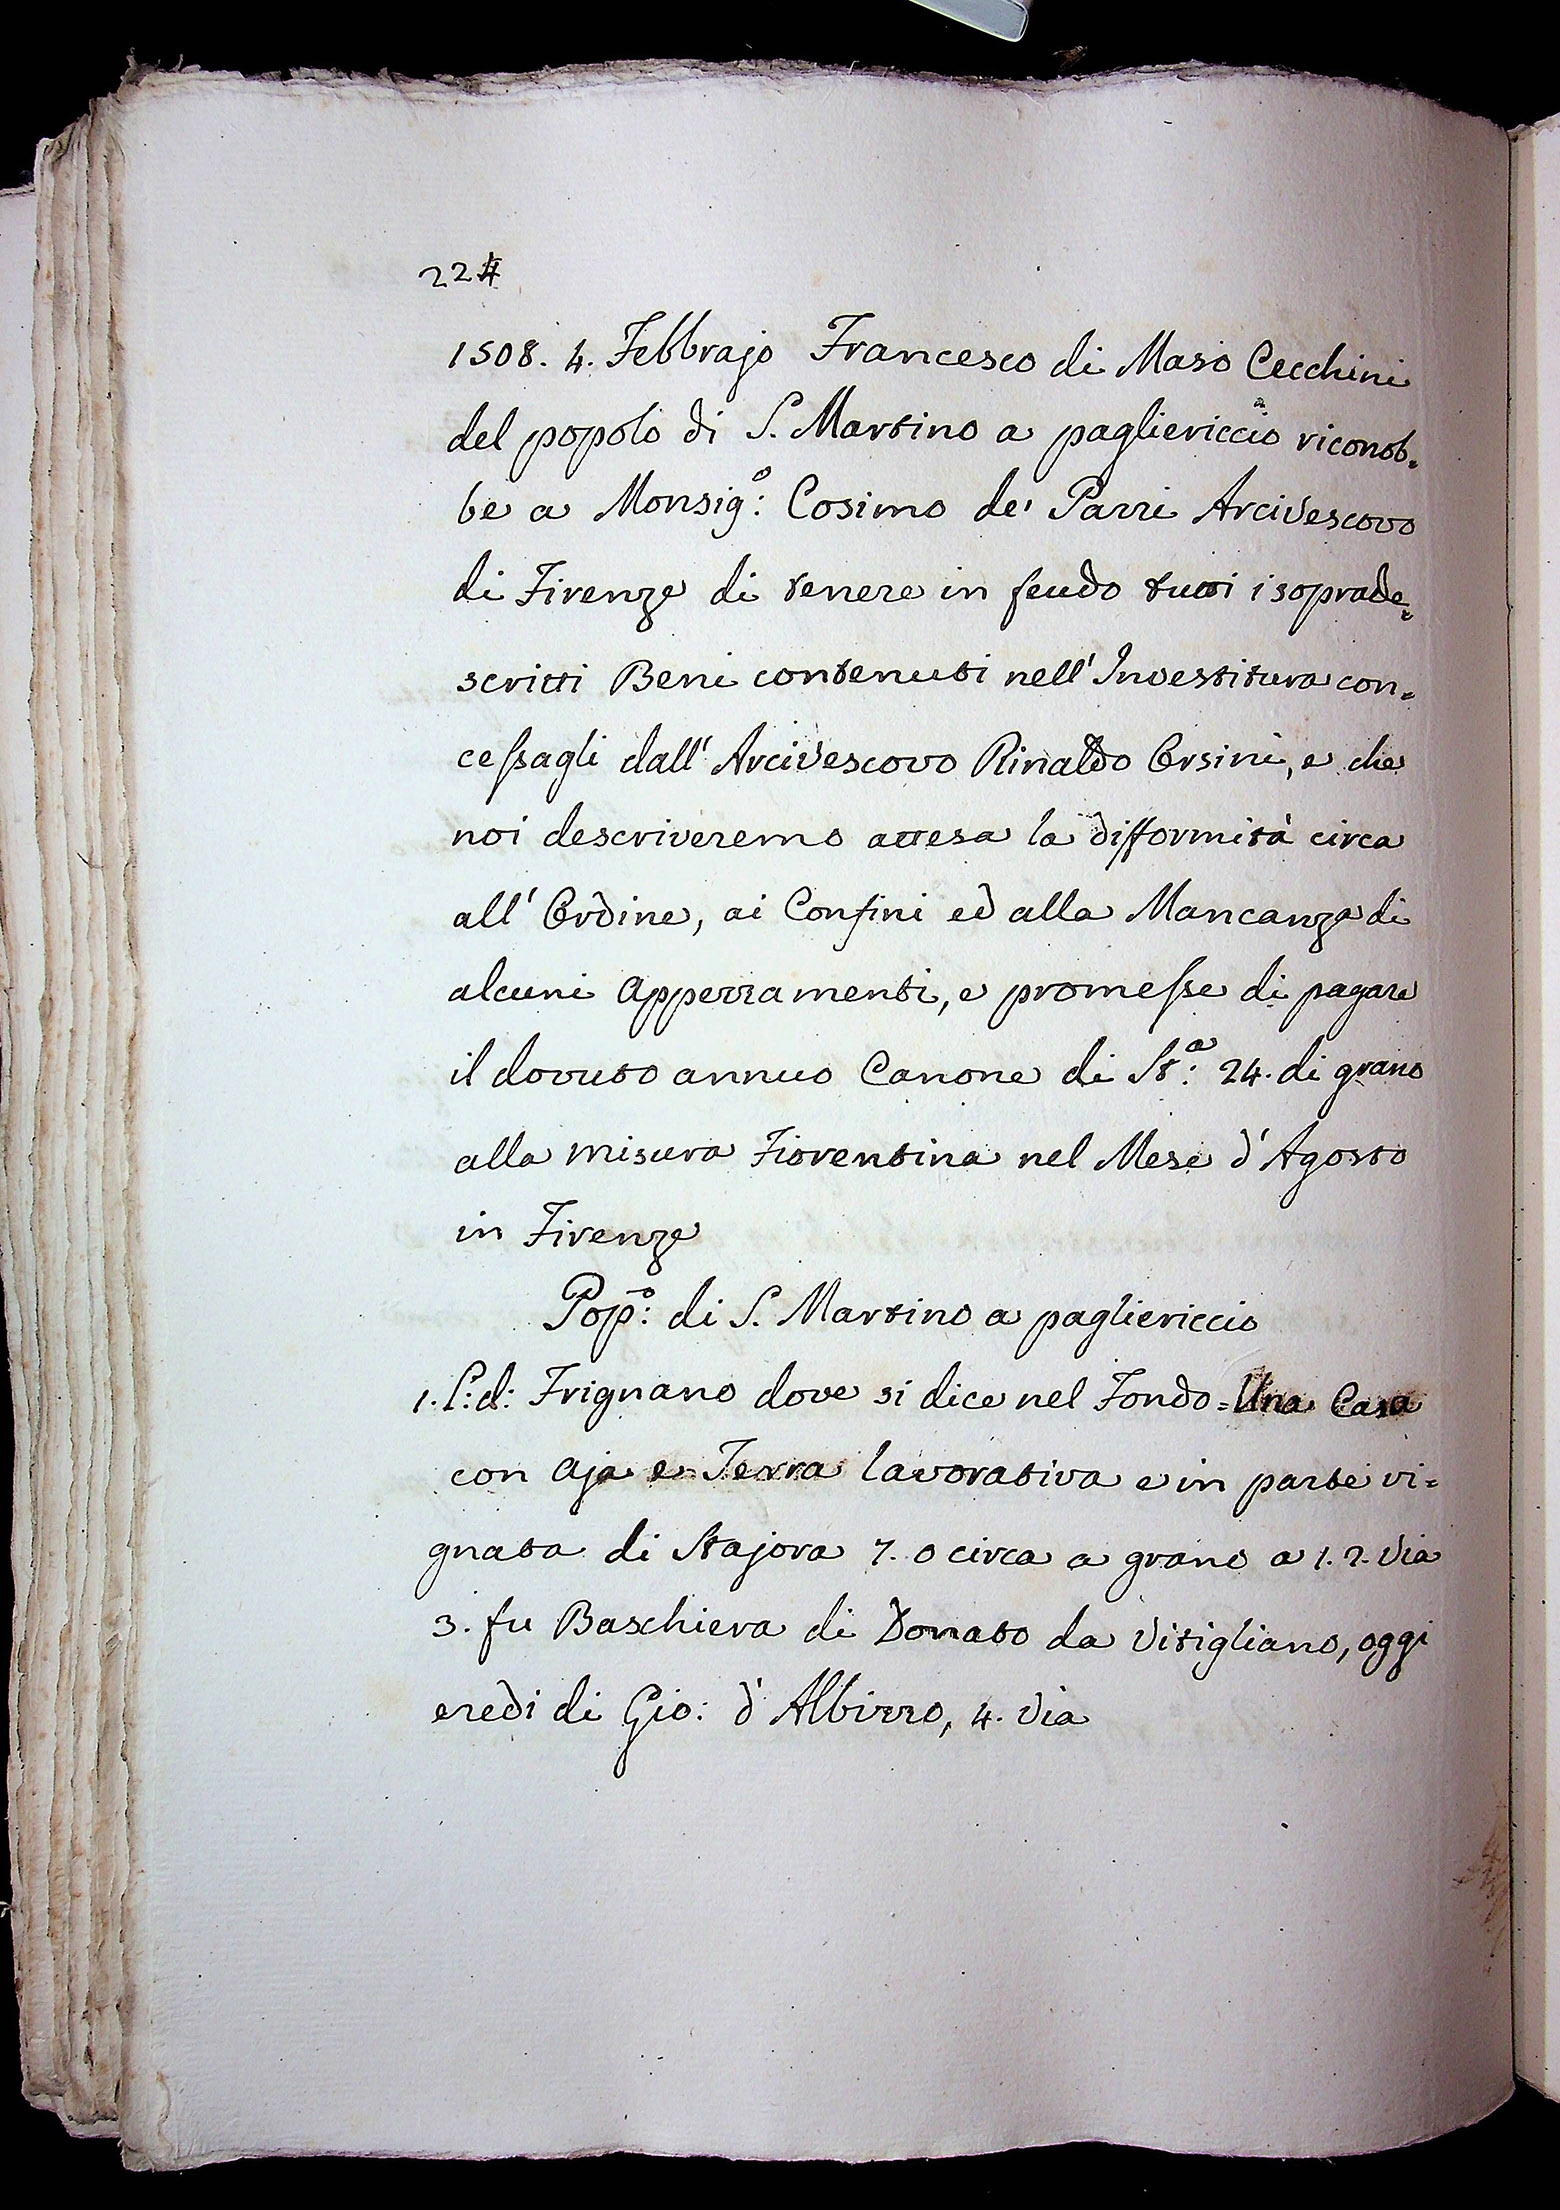 224
1508. 4. Febbrajo Francesco di Maso Cecchini
del popolo di S. Martino a pagliericcio riconob=
be a Monsig.º: Cosimo de' Pazzi Arcivescovo
di Firenze di tenere in feudo tutti i soprade=
scritti Beni contenuti nell' Investitura con=
cessagli dall' Arcivescovo Rinaldo Orsini, e che
noi descriveremo attesa la difformità circa
all' Ordine, ai Confini ed alla Mancanza di
alcuni Appezzamenti, e promesse di pagare
il dovuto annuo Canone di St.ª: 24. di grano
alla misura Fiorentina nel Mese d' Agosto
in Firenze
Pop.º: di S. Martino a pagliericcio
1. L: d: Frignano dove si dice nel Fondo = Una Casa
con Aja e Terra lavorativa e in parte vi=
gnata di Stajora 7. o circa a grano a 1. 2. Via
3. fu Baschiera di Donato da Vitigliano, oggi
eredi di Gio: d' Albizzo, 4. Via